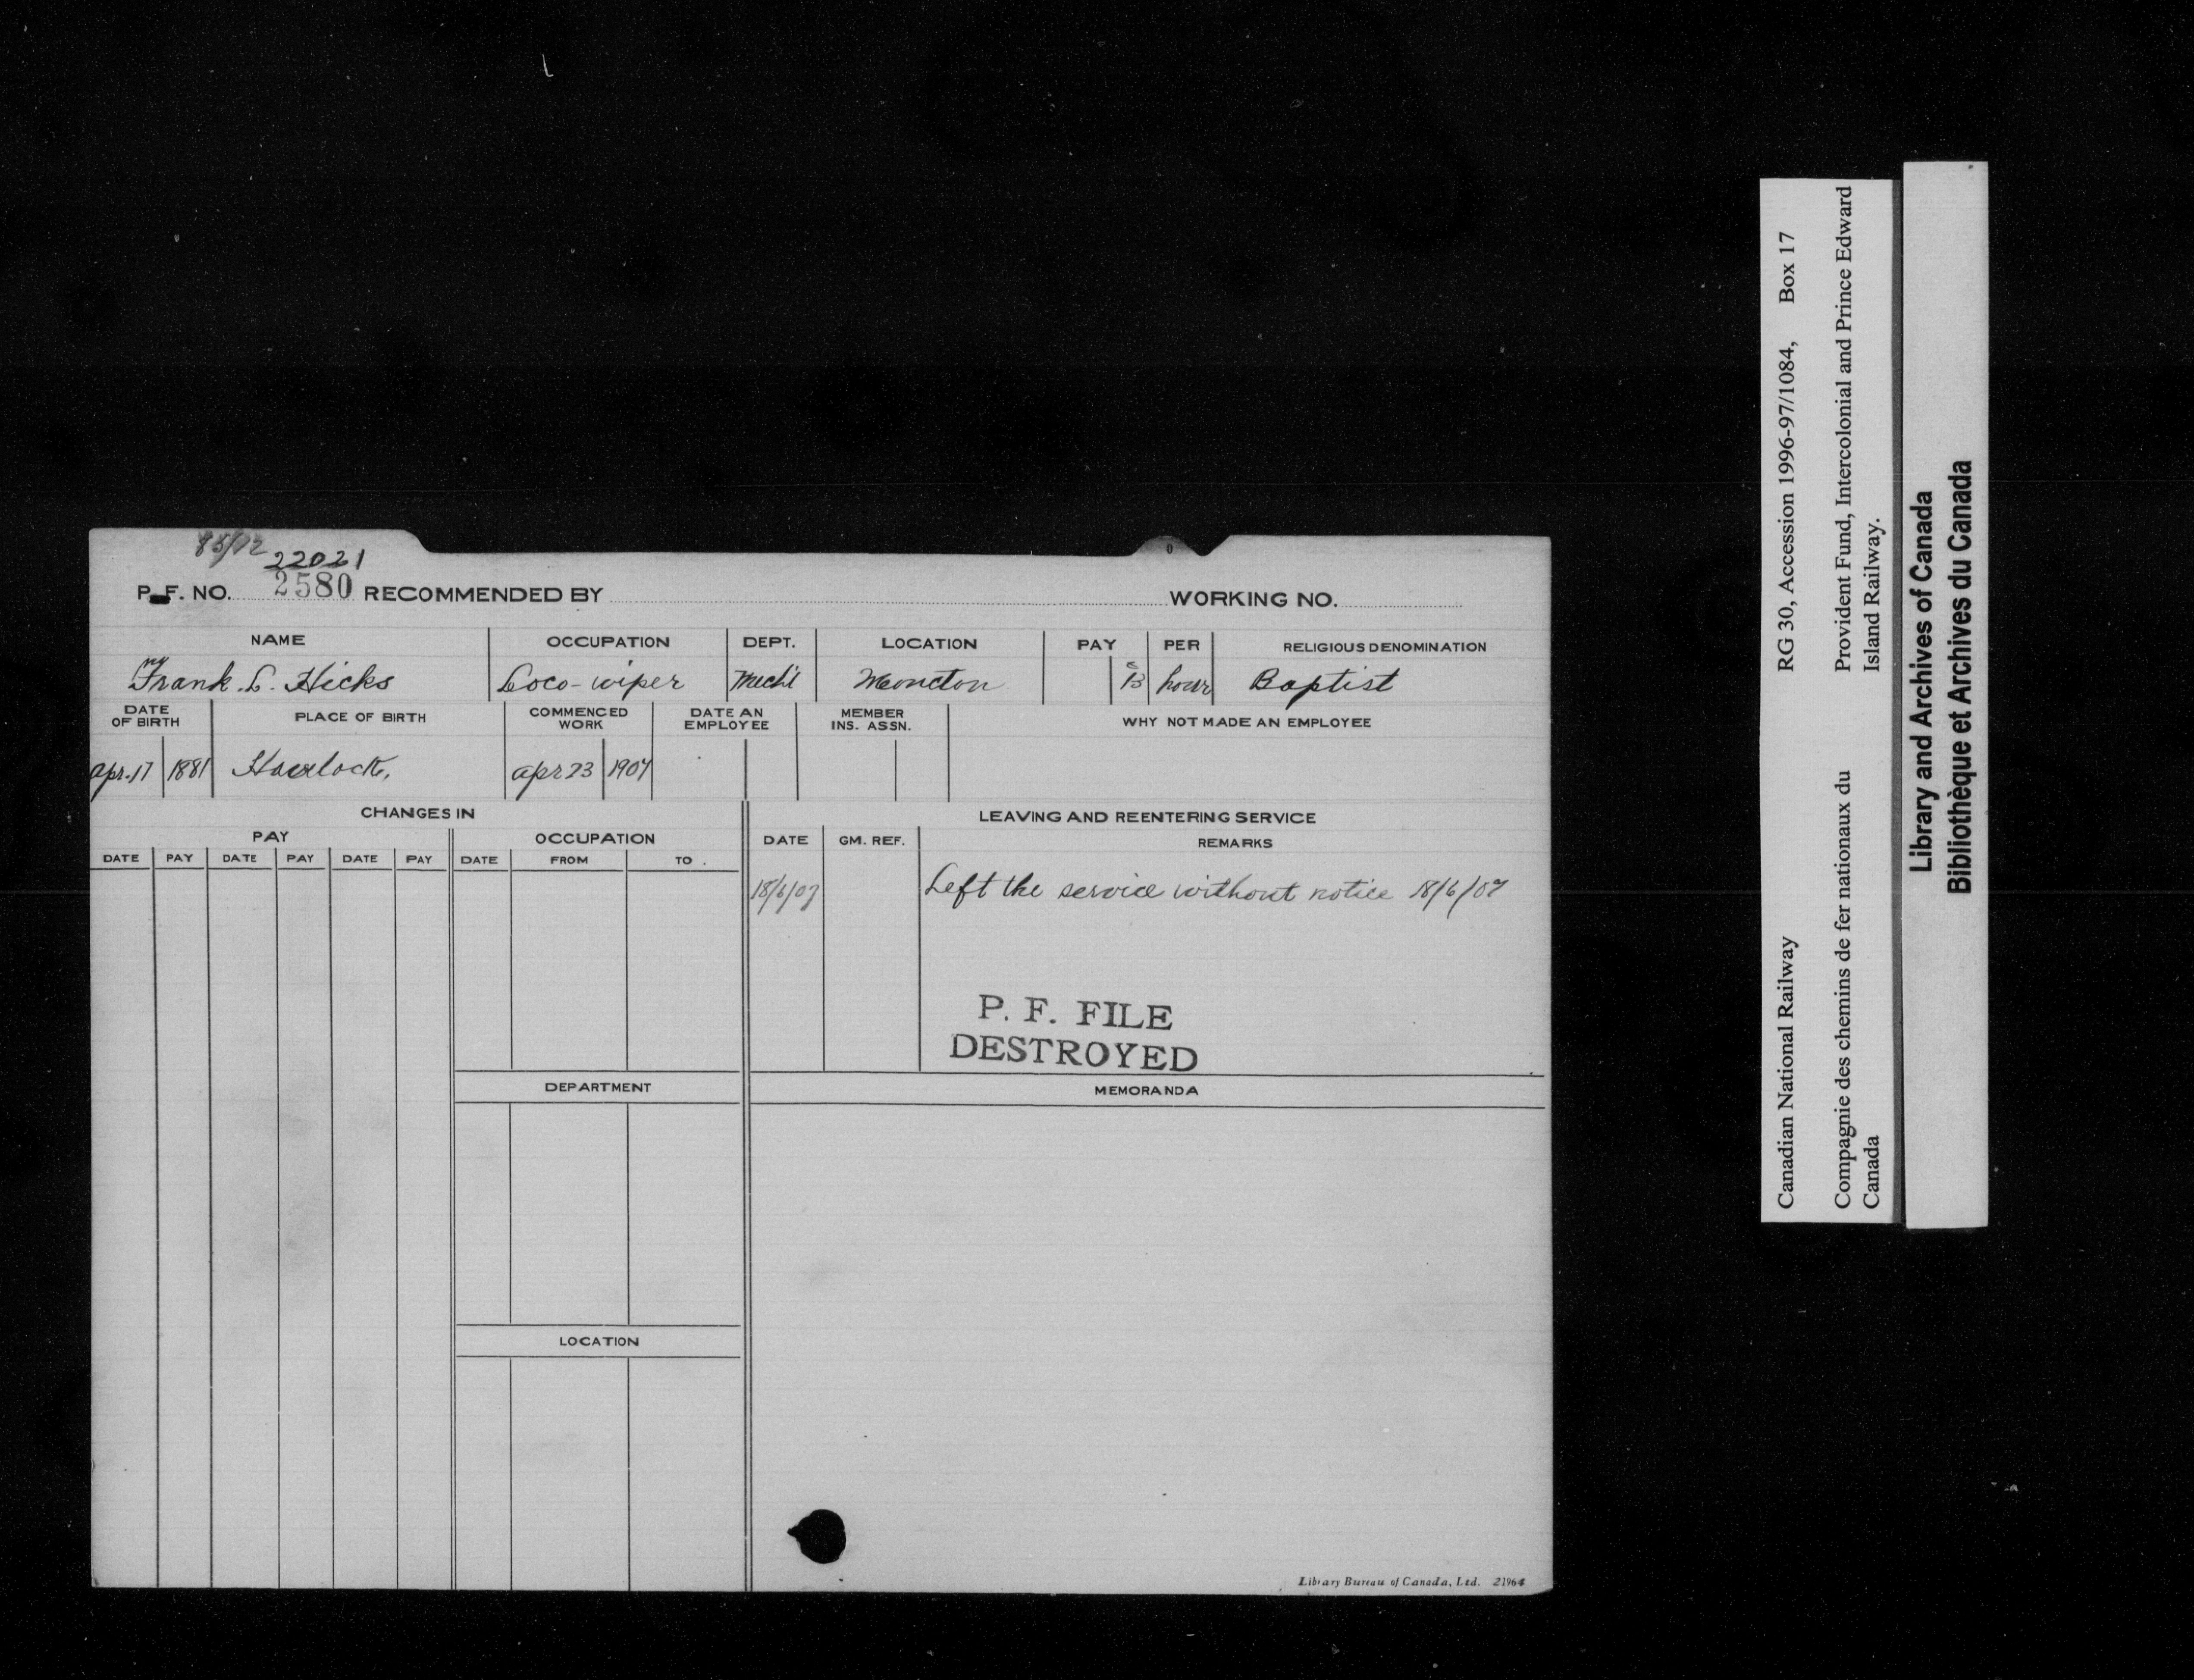 22021
P. F. NO. 2580 RECOMMENDED BY WORKING NO.
NAME OCCUPATION DEPT. LOCATION PAY PER RELIGIOUS DENOMINATION
Frank. L. Hicks Loco-wiper Mech'l Moncton 13 c hour Baptist
DATE OF BIRTH PLACE OF BIRTH COMMENCED WORK DATE AN EMPLOYEE MEMBER INS. ASSN. WHY NOT MADE AN EMPLOYEE
Apr. 17 1881 Havelock, Apr 23 1907
CHANGES IN LEAVING AND REENTERING SERVICE
PAY OCCUPATION DATE GM. REF. REMARKS
DATE PAY DATE PAY DATE PAY DATE FROM TO.
18/6/07 Left the service without notice 18/6/07
P. F. FILE
DESTROYED
DEPARTMENT MEMORANDA
LOCATION
Library Bureau of Canada, Ltd. 21964
Canadian National Railway RG 30, Accession 1996-97/1084, Box 17
Compagnie des chemins de fer nationaux du Canada
Provident Fund, Intercolonial and Prince Edward Island Railway.
Library and Archives of Canada
Bibliothèque et Archives du Canada